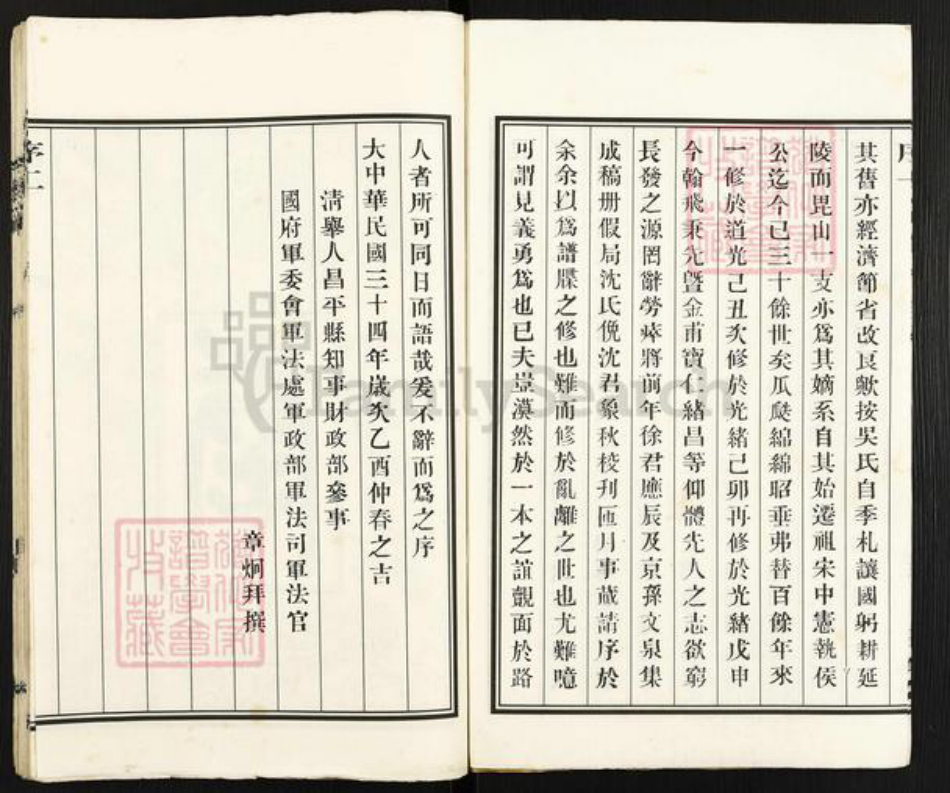 其舊亦經濟節省改良歟按吳氏自季札讓國躬耕延
陵而毘山一支亦爲其嫡系自其始遷祖宋中憲執侯
公迄今已三十餘世矣瓜瓞綿綿昭垂弗替百餘年來
一修於道光己丑次修於光緒己卯再修於光緒戊申
今翰飛秉先曁金甫寶仁緒昌等仰體先人之志欲窮
長發之源罔辭勞瘁將前年徐君應辰及京孫文泉集
成稿册假局沈氏俛沈君蒙秋校刋匝月事蕆請序於
余余以爲譜牒之修也難而修於亂離之世也尤難噫
可謂見義勇爲也已夫豈漠然於一本之誼覿面於路
人者所可同日而語哉爰不辭而爲之序
大中華民國三十四年歲次乙酉仲春之吉
清舉人昌平縣知事財政部參事
國府軍委會軍法處軍政部軍法司軍法官
章炯拜撰
序二
FamilySearch